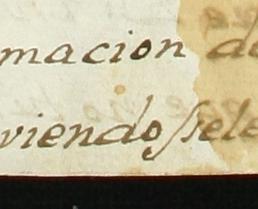 macion de
viendoſsele